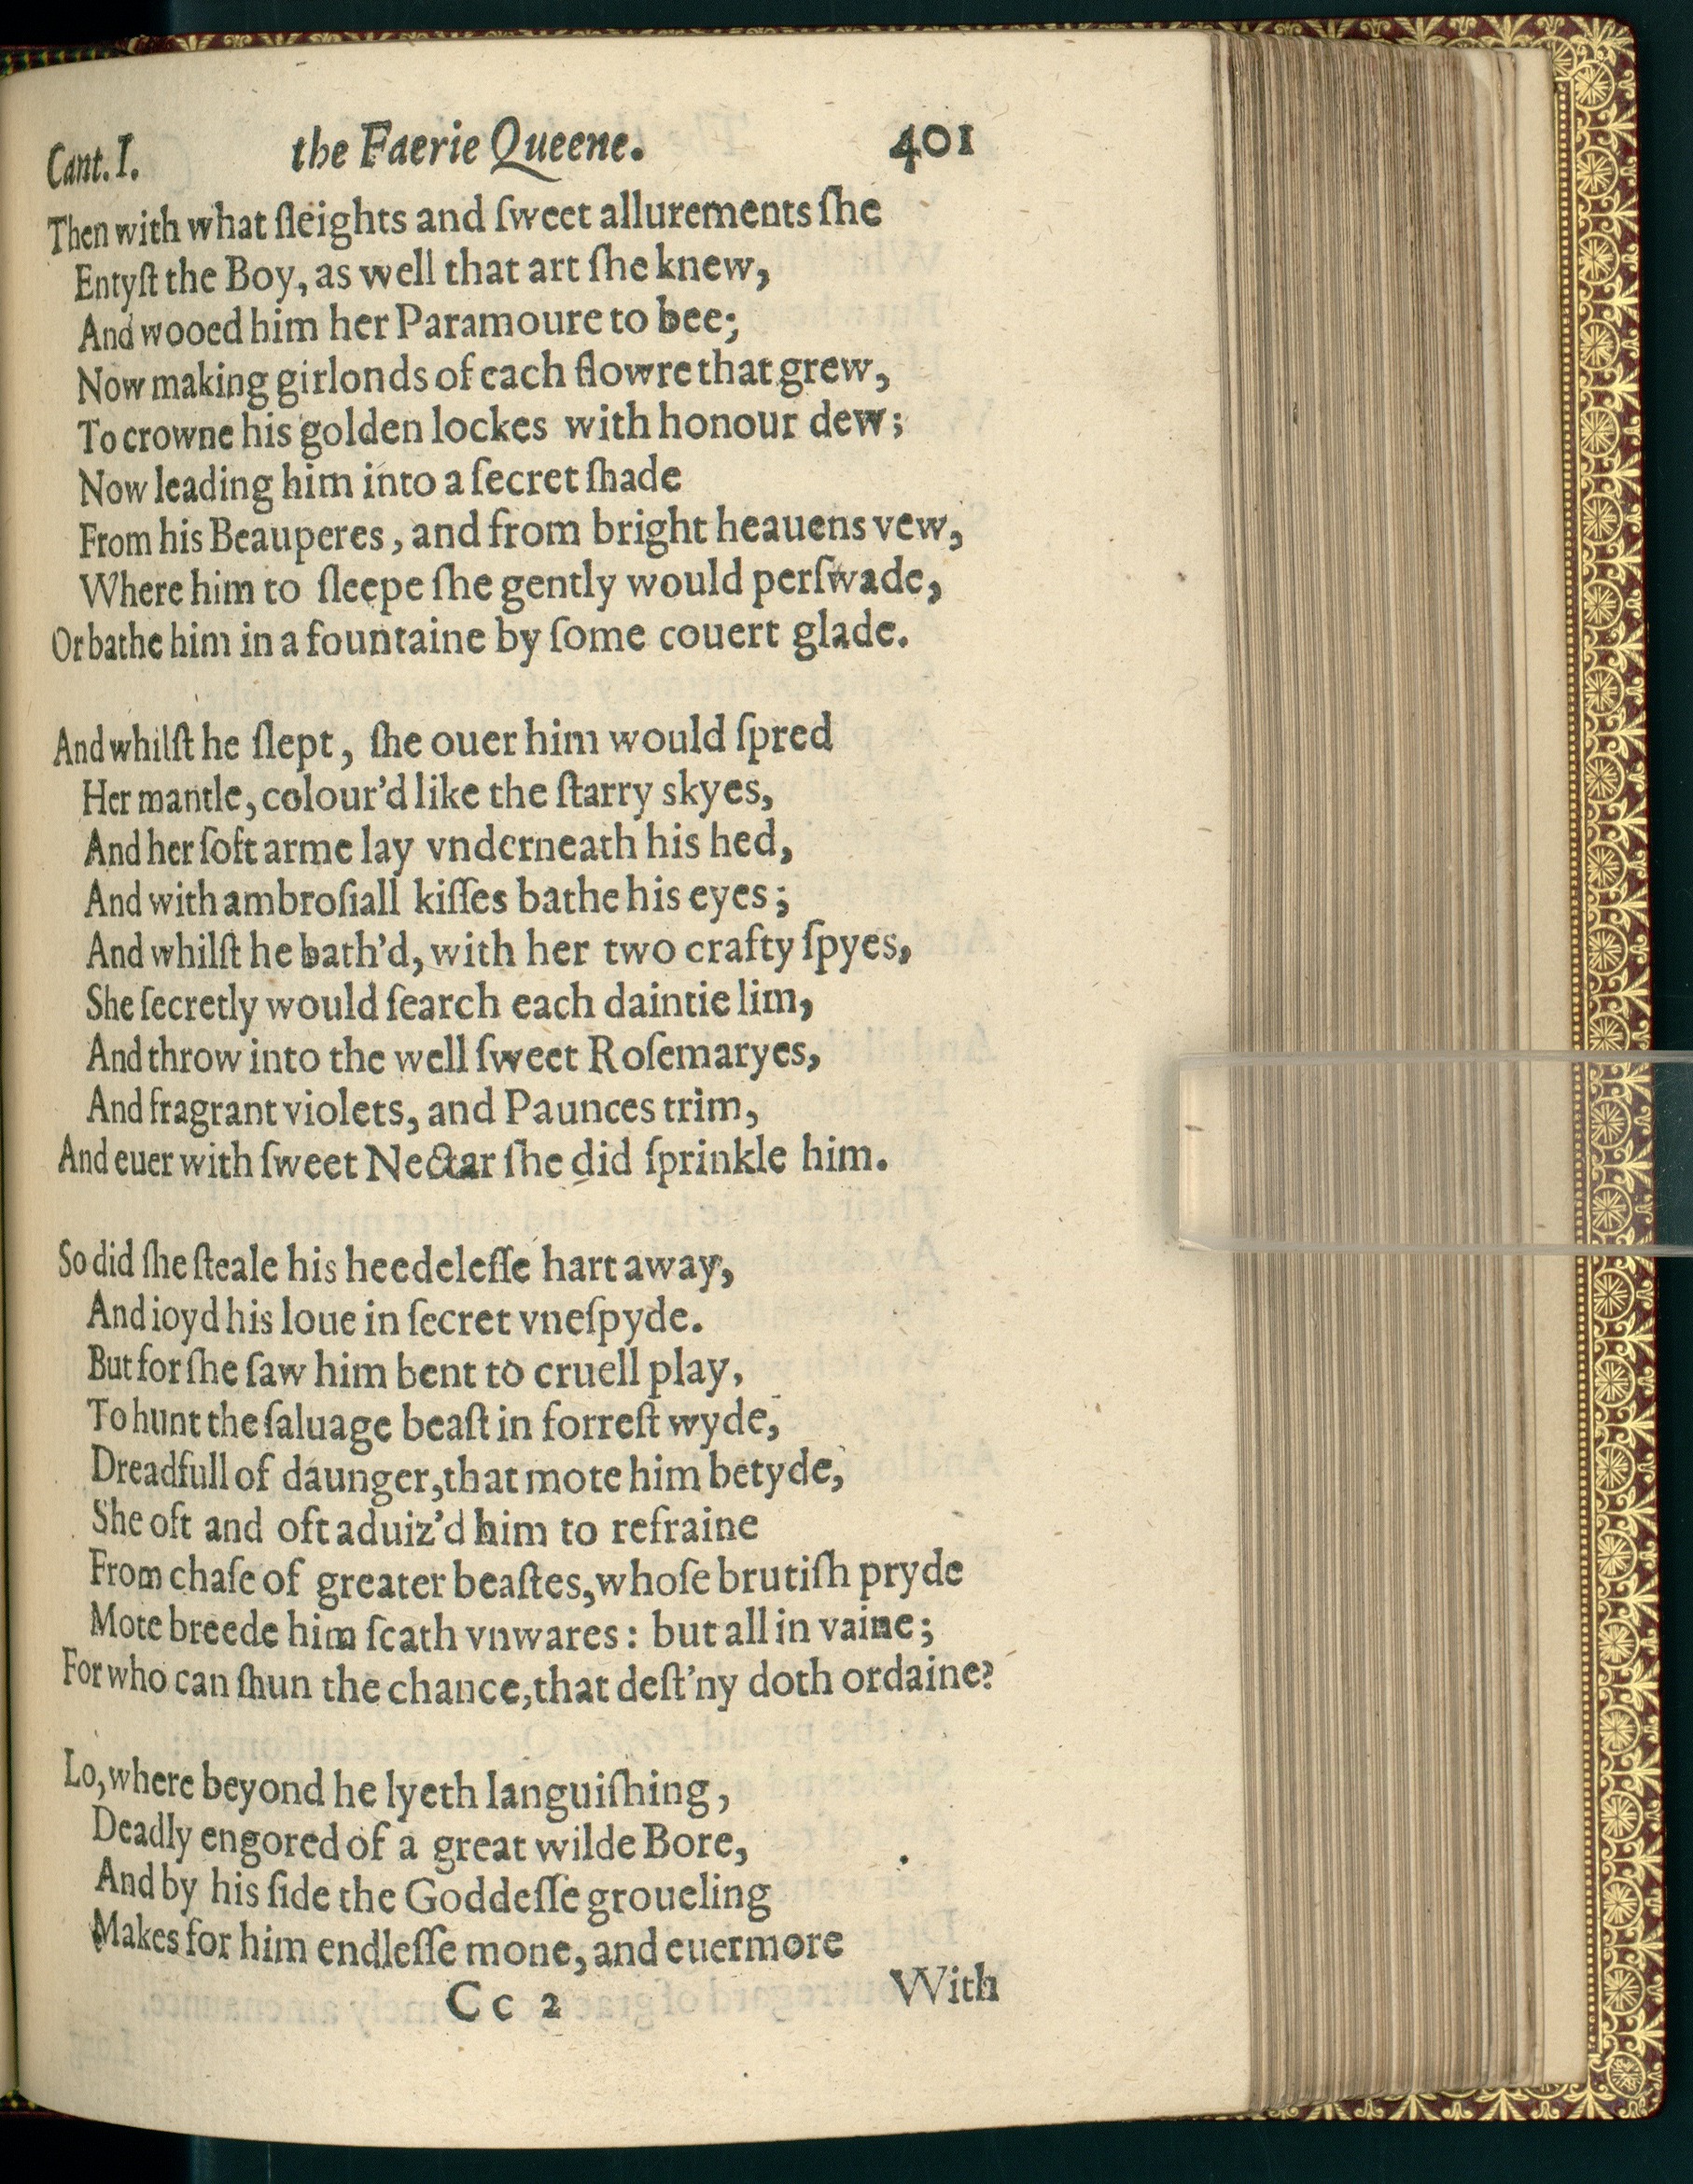 Cant. I. the Faerie Queene. 401
Then with what ſleights and ſweet allurements ſhe
Entyſt the Boy, as well that art ſhe knew,
And wooed him her Paramoure to bee;
Now making girlonds of each flowre that grew,
To crowne his golden lockes with honour dew;
Now leading him into a ſecret ſhade
From his Beauperes, and from bright heauens vew,
Where him to ſleepe ſhe gently would perſwade,
Or bathe him in a fountaine by ſome couert glade.
And whilſt he ſlept, ſhe ouer him would ſpred
Her mantle, colour'd like the ſtarry skyes,
And her ſoft arme lay vnderneath his hed,
And with ambroſiall kiſſes bathe his eyes;
And whilſt he bath'd, with her two crafty ſpyes,
She ſecretly would ſearch each daintie lim,
And throw into the well ſweet Roſemaryes,
And fragrant violets, and Paunces trim,
And euer with ſweet Nectar ſhe did ſprinkle him.
So did ſhe ſteale his heedeleſſe hart away,
And ioyd his loue in ſecret vneſpyde.
But for ſhe ſaw him bent to cruell play,
To hunt the ſaluage beaſt in forreſt wyde,
Dreadfull of daunger, that mote him betyde,
She oft and oft aduiz'd him to refraine
From chaſe of greater beaſtes, whoſe brutiſh pryde
Mote breede him ſcath vnwares: but all in vaine;
For who can ſhun the chance, that deſt'ny doth ordaine?
Lo, where beyond he lyeth languiſhing,
Deadly engored of a great wilde Bore,
And by his ſide the Goddeſſe groueling
Makes for him endleſſe mone, and euermore
Cc 2 With